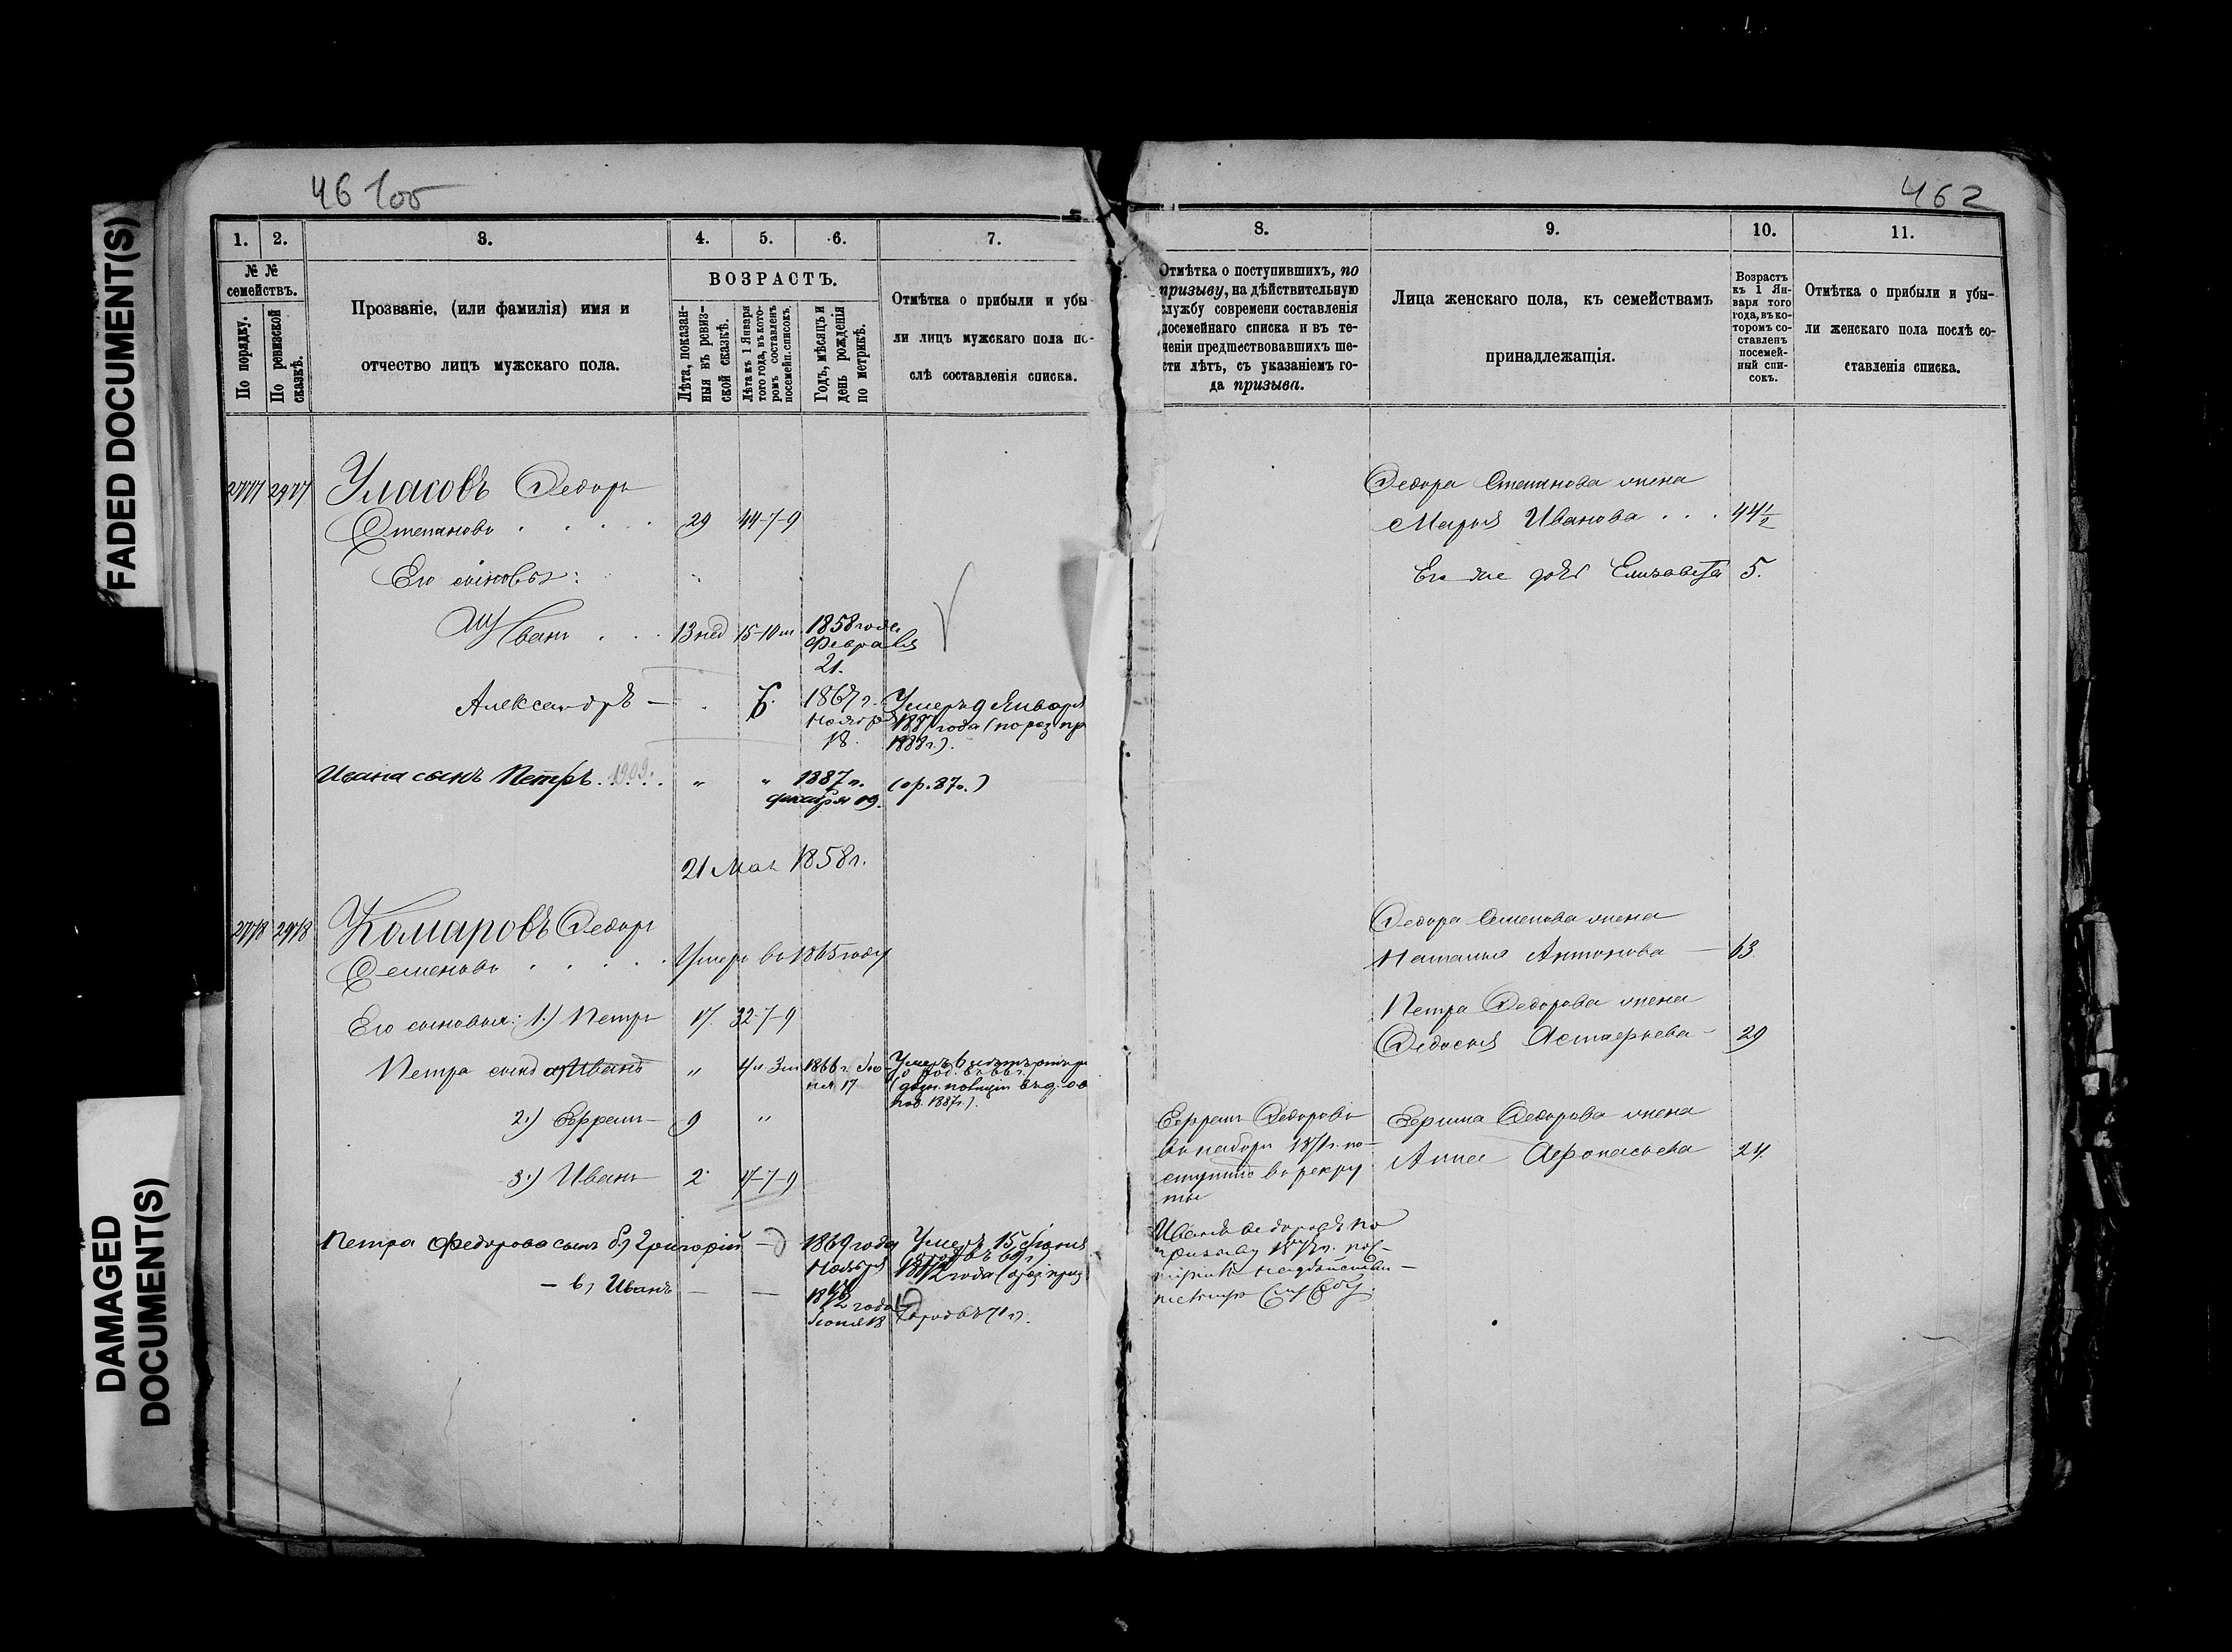 FADED DOCUMENT(S)
DAMAGED
DOCUMENT(S)
462
1. 2. 3. 4. 5. 6. 7.
№ №
семействъ.
По порядку.
По ревизской
сказкѣ.
Прозваніе, (или фамилія) имя и
отчество лицъ мужскаго пола.
ВОЗРАСТЪ.
Лѣта, показан-
ныя въ ревиз-
ской сказкѣ.
Лѣта къ 1 Января
того года, въ кото-
ромъ составленъ
посемейн. списокъ.
Годъ, мѣсяцъ и
день рожденія
по метрикѣ.
Отмѣтка о прибыли и убы
ли лицъ мужскаго пола по-
слѣ составленія списка.
8. 9. 10. 11.
Отмѣтка о поступившихъ, по
призыву, на дѣйствительную
службу современи составленія
посемейнаго списка и въ те-
ченіи предшествовавшихъ ше-
сти лѣтъ, съ указаніемъ го-
да призыва.
Лица женскаго пола, къ семействамъ
принадлежащія.
Возрастъ
къ 1 Ян-
варя того
года, въ ко-
торомъ со-
ставленъ
посемей-
ный спи-
сокъ.
Отмѣтка о прибыли и убы-
ли женскаго пола послѣ со-
ставленія списка.
Уласовъ Федоръ
Степановъ 29 44-7-9
Его сыновья:
Иванъ 13 нед 15-10 м 1858 года
Февраля
21.
Александръ — 6. 1867 г. Умеръ 9 Января
Ноября 1887 года
18. 1888 г.).
Ивана сынъ Петръ. 1909. „ „ 1887 г. (ор. 87 г.)
декабря 19.
21 Мая 1858 г.
Комаровъ Федоръ
Семеновъ Умеръ въ 1865 году
Его сыновья: 1.) Петръ 17. 32-7-9
Петра сынъ а) Иванъ „ 1866 г. Умеръ
17
1887 г.).
2.) Ефремъ — 9 „
3.) Иванъ — 2 17-7-9
Петра Федорова сынъ б) Григорій — 1869 года Умеръ 15
Ноября 1872 года
— в) Иванъ — — 1872 года
18
Федора Степанова жена
Марья Иванова 44½
Его же дочь Елизавета 5.
Федора Семенова жена
Наталья Антонова — 63.
Петра Федорова жена
Федосья Астафьева — 29
Ефремъ Федоровъ
въ наборъ 1871 г. по-
ступилъ въ рекру
ты
Ефрема Федорова жена
Анна Афонасьева 24.
Иванъ Федоровъ по
призыву
службу.